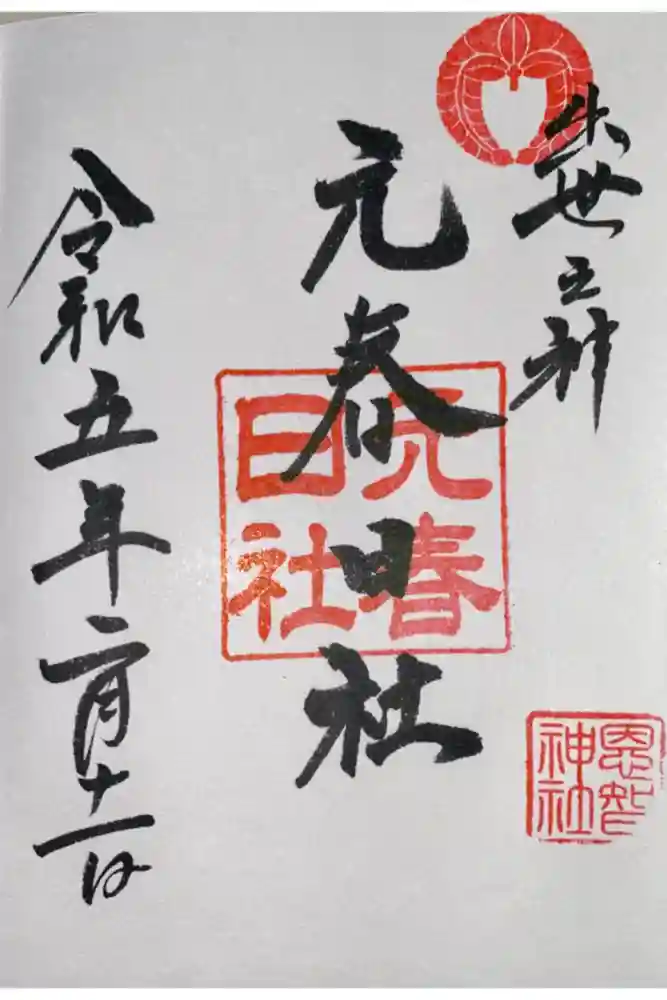 出世之神
元春日社
令和五年二月十一日
元春日社
恩智神社